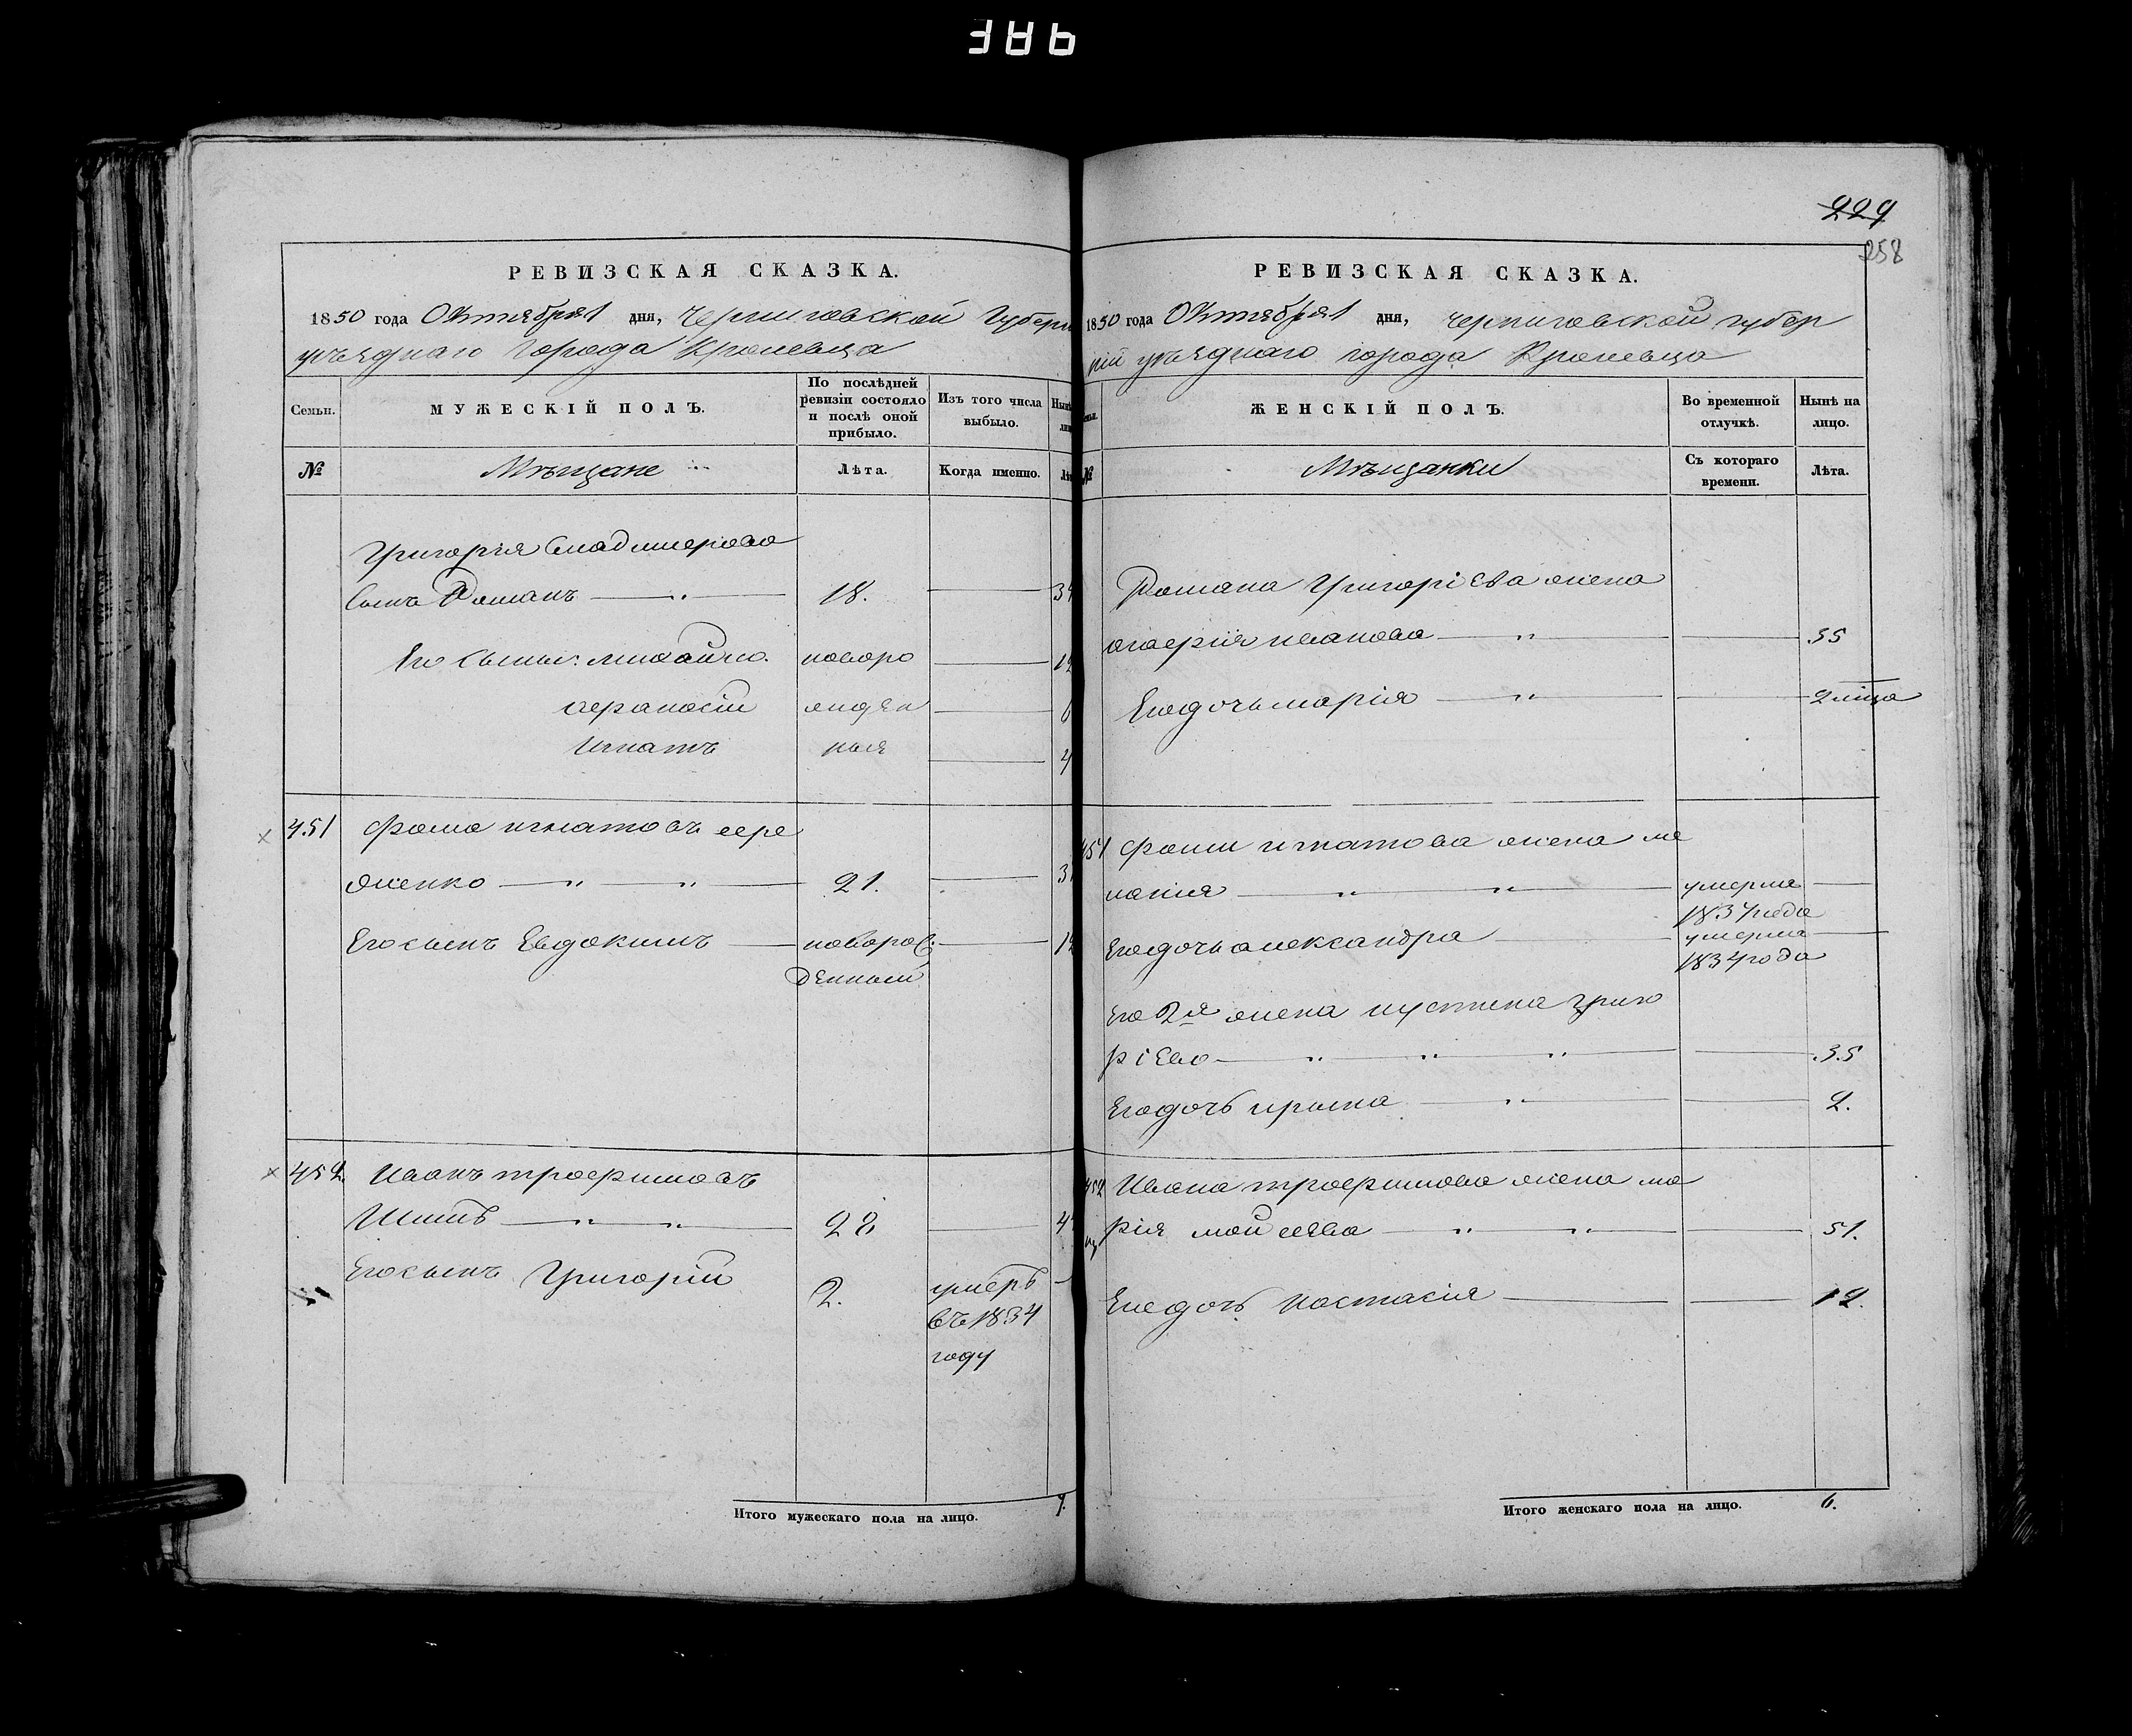 386
РЕВИЗСКАЯ СКАЗКА.
1850 года Октября 1 дня, Черниговской Губерн
уѣзднаго Города Кролевца
Семьи.
МУЖЕСКІЙ ПОЛЪ.
По послѣдней ревизіи состояло и послѣ оной прибыло.
Изъ того числа выбыло.
№
Мѣщане
Лѣта.
Когда именно.
Григорія Владимерова
Сынъ Романъ 18.
Его Сыны: михайло. новоро
Афанасій жден
Игнатъ ныя
451 Фома игнатовъ
женко 21.
Его сынъ Евдокимъ новоро
жденный
452. Иванъ трофимовъ
28
Его сынъ Григорій 2. умеръ
въ 1834
году
Итого мужескаго пола на лицо. 7.
229
258
РЕВИЗСКАЯ СКАЗКА.
1850 года Октября 1 дня, черниговской губер
ній уѣзднаго города Кролевца
ЖЕНСКІЙ ПОЛЪ.
Во временной отлучкѣ.
Нынѣ на лицо.
№
Мѣщанки
Съ котораго времени.
Лѣта.
Романа Григоріева жена
иванова 35
Его дочь марія
451 Фоми игнатова жена ме
ланія умерла
1834 года
Его дочь александра умерла
1834 года
Его 2я жена устина григо
ріева 35
Его дочь ирина 2.
452 Ивана трофимова жена ма
рія мойсеева 51.
Его дочь настасія 12.
Итого женскаго пола на лицо. 6.